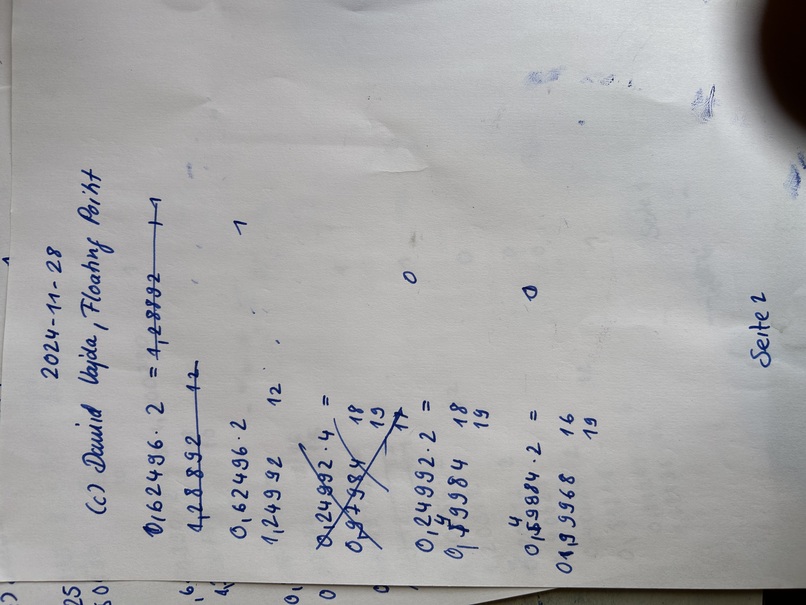 2024-11-28
(c) David Vajda, Floating Point
0,62496 · 2 = 1,28892 1
1,28892 12
0,62496 · 2 1
1,24992 12
0,24992 · 4 =
0,97984 18
19
17
0,24992 · 2 = 0
0,49984 18
19
0,49984 · 2 = 0
0,99968 16
19
Seite 2